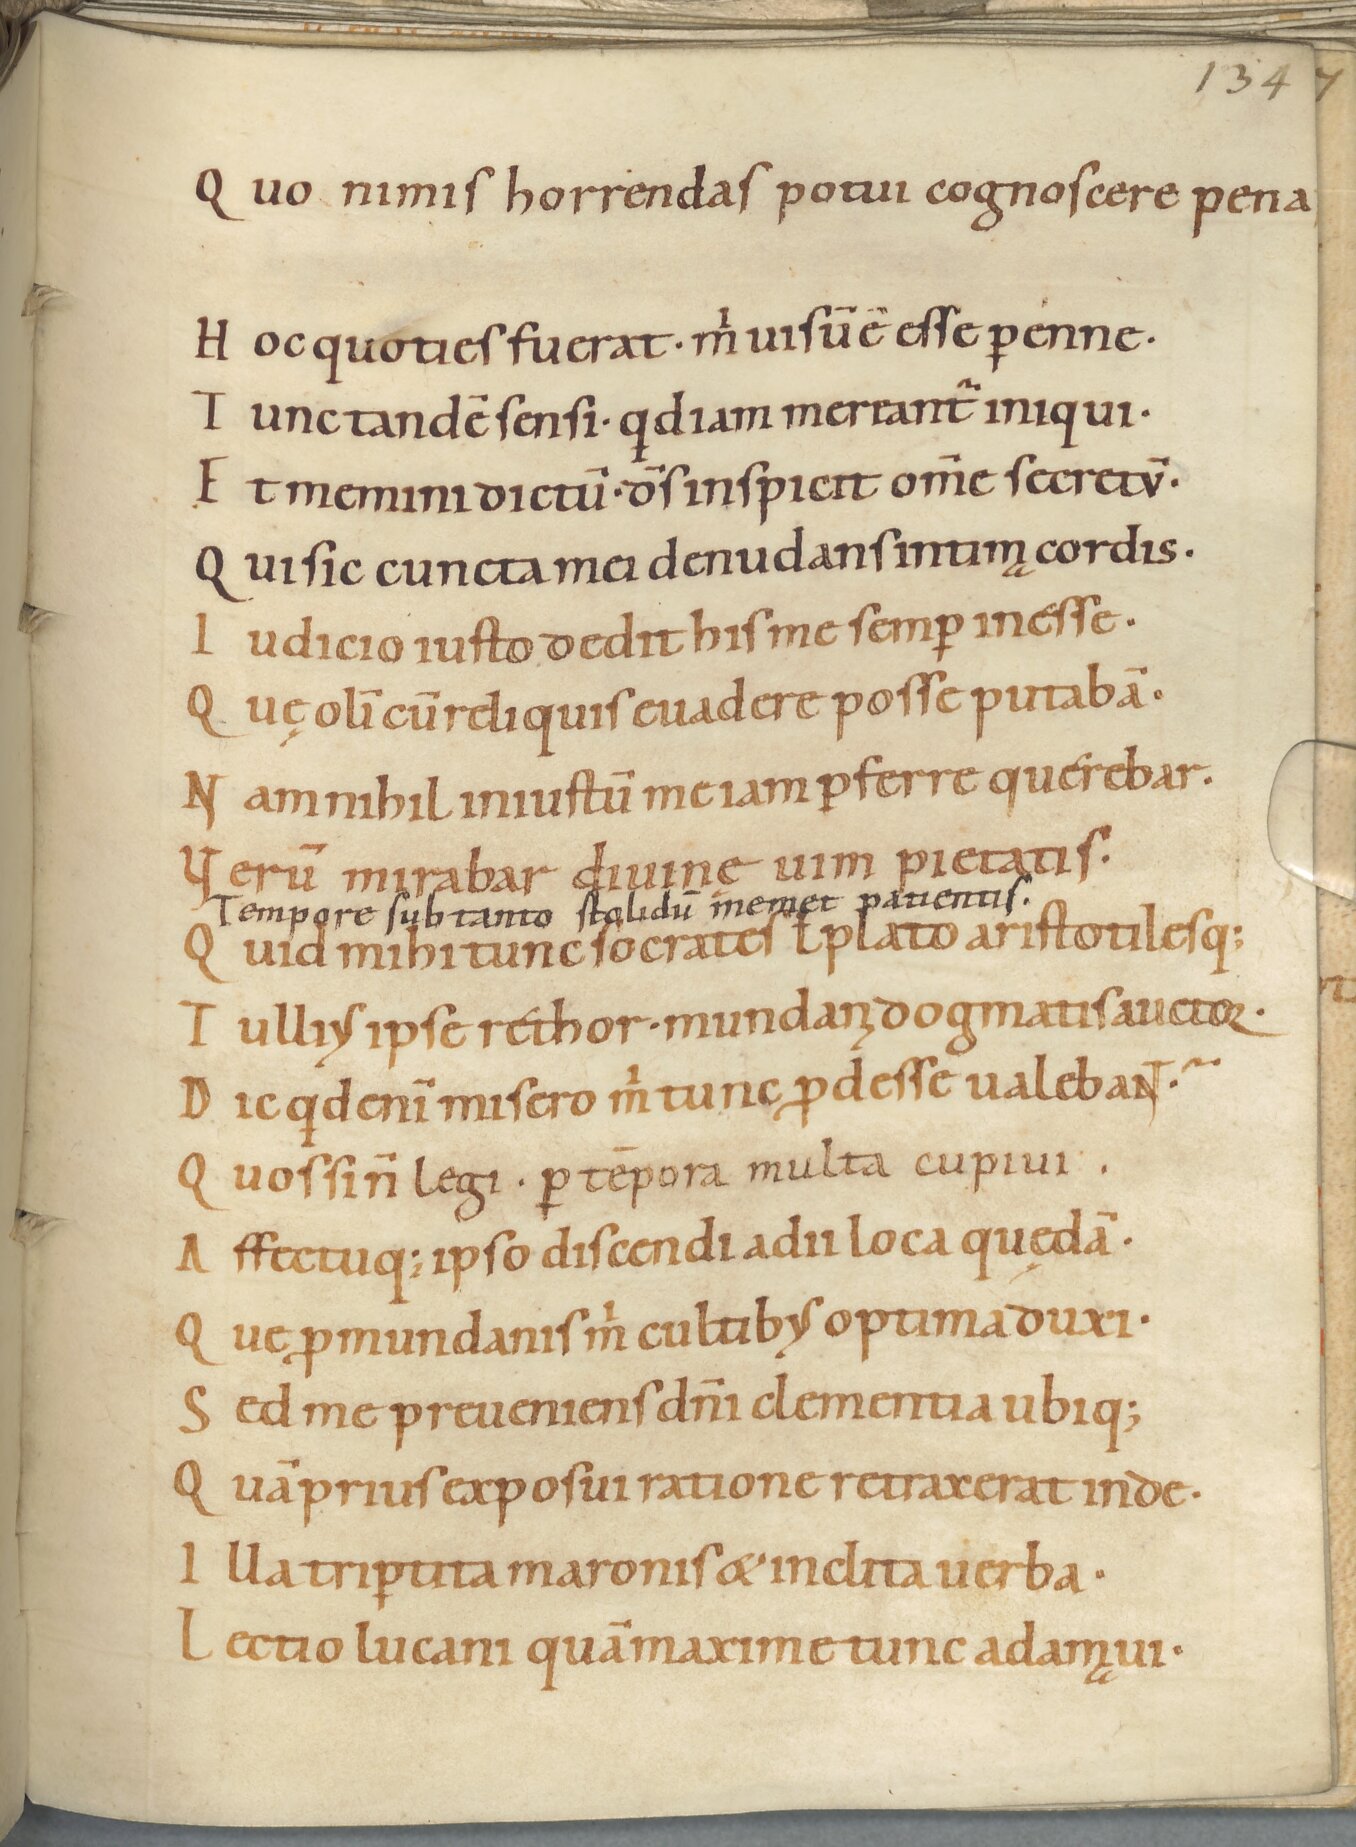 134
7
Quo nimis horrendas potui cognoscere pena
Hoc quoties fuerat · m̍ uisū ē esse ꝑenne ·
Tunc tandē sensi · qđ iam mereant᷑ iniqui ·
Et memini dictū · d̄s inspicit om̄e secretū ·
Qui sic cuncta mei denudans intimꜫ cordis ·
Iudicio iusto dedit his me semꝑ inesse ·
Quę olī cū reliquis euadere posse putabā ·
Nam nihil iniustū me iam ꝑferre querebar ·
Verū mirabar diuinę uim pietatis ·
Tempore sub tanto stolidū memet patientis ·
Quid mihi tunc socrates ł plato aristotilesq;
Tulliꝰ ipse rethor · mundani dogmatis auctor ·
Dic qđ enī misero m̍ tunc ꝓdesse ualebant · ~
Quos sin̄ legi · ꝑ tēpora multa cupiui ·
Affectuq; ipso discendi adii loca quędā ·
Quę ꝓ mundanis m̍ cultibꝰ optima duxi ·
Sed me preueniens dn̄i clementia ubiq;
Quā prius exposui ratione retraxerat inde ·
Illa triꝑtita maronis & inclita uerba ·
Lectio lucani quā maxime tunc adamaui ·